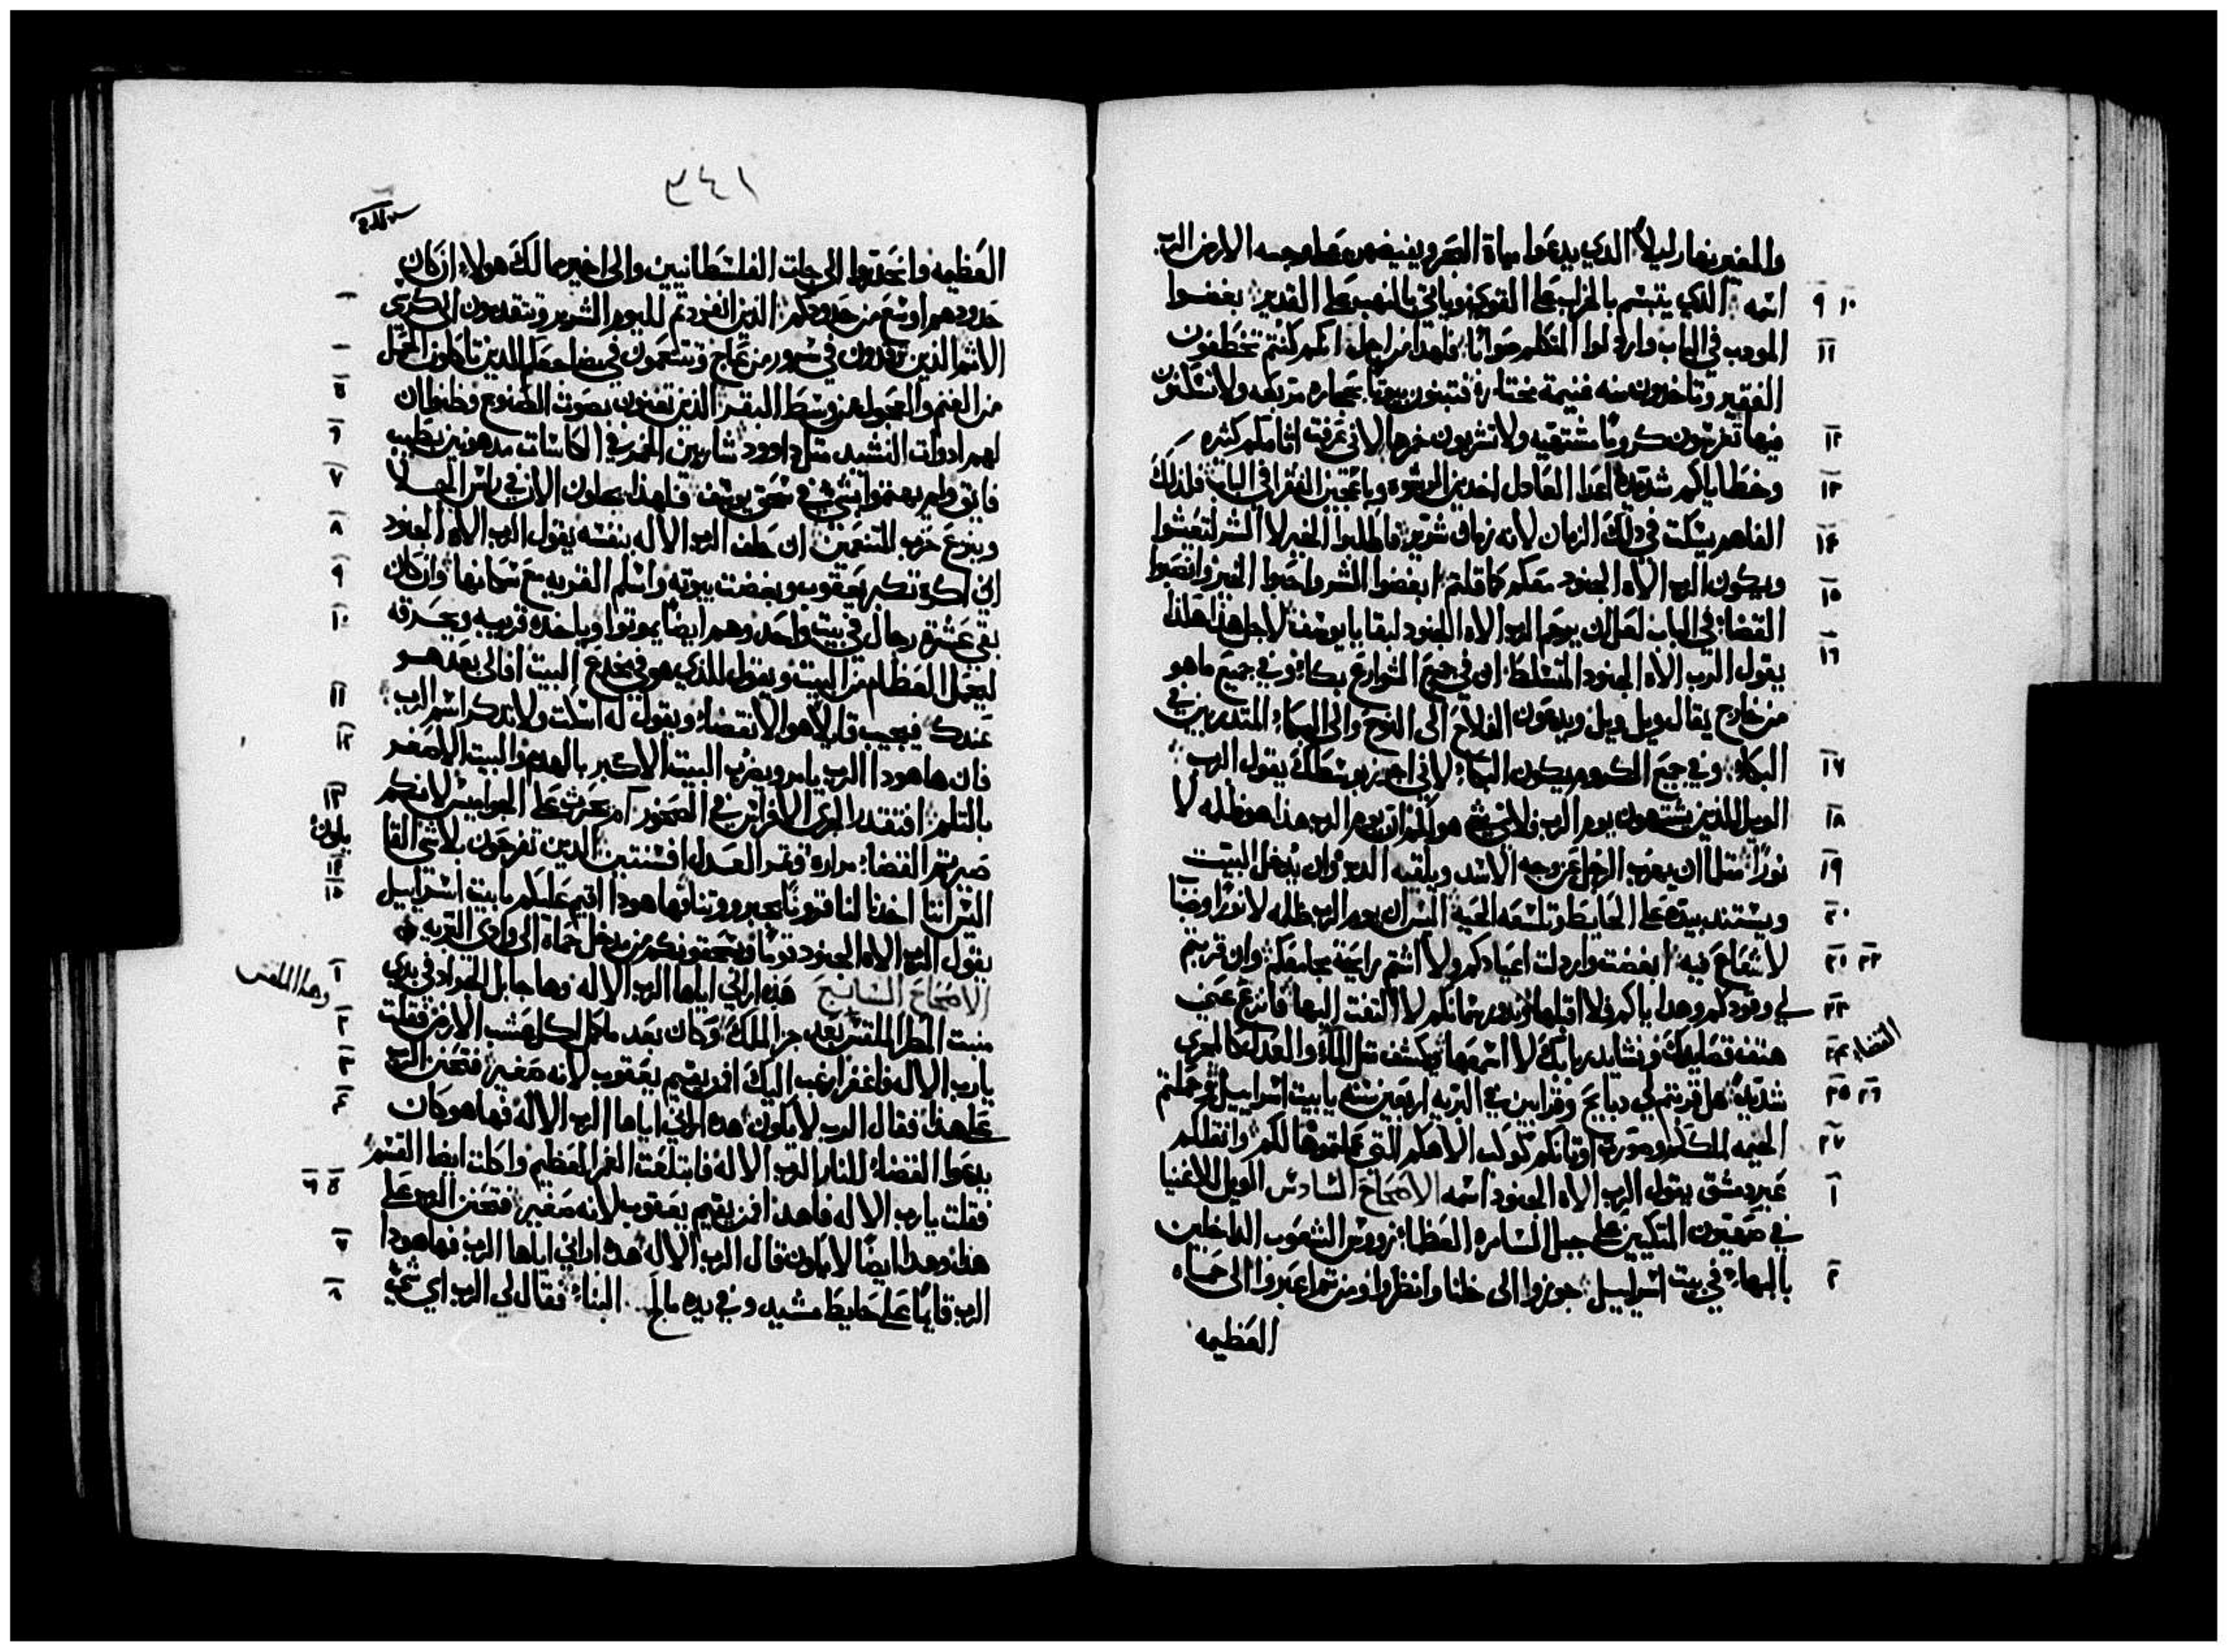 والمغير نهارا ليلا الذي يدعوا مياة البحر ويفيضهن على وجه الارض الرب
٩ ١٠ اسمه الذي يتبسم بالخراب على القوي وياتي بالنهب على القدير بغضوا
١١ الموبب في الباب واردلوا المتكلم صوابا فلهدا من اجل انكم كنتم تخطفون
الفقير وتاخدون منه غنيمة مختارة فتبنون بيوتا بحجاره مربعه ولا تسكنون
١٢ فيها تغرسون كروما مشتهيه ولا تشربون خمرها لاني عرفت اثامكم كثيره
١٣ وخطاياكم شديده اعدا العادل اخدين الرشوه وباعجين الفقرا في الباب فلدلك
١٤ الفاهم يسكت في دلك الزمان لانه زمان شرير فاطلبوا الخير لا الشر لتعشوا
١٥ ويكون الرب الاه الجنود معكم كما قلتم ابغضوا الشر واحبوا الخير وانصبوا
القضا في الباب لعل ان يرحم الرب الاه الجنود لبقايا يوسف لاجل هدا هكدا
١٦ يقول الرب الاه الجنود المتسلط ان في جميع الشوارع بكا وفي جميع ما هو
من خارج يقال ويل ويل ويدعون الفلاح الى النوح والى البكاء المتدربين في
١٧ البكاء وفي جميع الكروم يكون البكاء لاني اجوز بوسطك يقول الرب
١٨ الويل للذين يشتهون يوم الرب ولاي شي هو لكم ان يوم الرب هدا هو ظلمه لا
١٩ نورا مثلما ان يهرب الرجل عن وجه الاسد ويلقيه الدب وان يدخل البيت
٢٠ ويستند بيده على الحايط وتلسعه الحية اليس ان يوم الرب ظلمه لا نورا وضبا
٢١ ٢٢ لا شعاع فيه ابغضت واردلت اعيادكم ولا اشتم رايحة مجامعكم وان قربتم
٢٣ لي وقودكم وهداياكم فلا اقبلها وندور سمانكم لا التفت اليها فانزع عني
٢٤ هتف قصايدك ونشايد ربابك لا اسمعها ويكشف مثل الماء القضاء والعدل كالمجري
٢٥ ٢٦ شديد هل قربتم لي دبايح وقرابين في البريه اربعين سنه يا بيت اسراييل وحملتم
٢٧ الخيمه لملككم وصورة اوثانكم كوكب الاهكم التي عملتموها لكم وانقلكم
١ عبر دمشق يقول الرب الاه الجنود اسمه الاصحاح السادس الويل للاغنيا
في صهيون المتكيين على جبل السامره العظماء روس الشعوب الداخلين
٢ بالبهاء في بيت اسراييل جوزوا الى خلنا وانظروا ومن ثم اعبروا الى حماه
العظيمه
٣٤١
العظيمه وانحدروا الى جات الفلسطانيين والى اخير ممالك هولاء ان كان
حدودهم اوسع من حدودكم الذين انفردتم لليوم الشرير وتتقدمون الى كرسي
الاثم الذين ترقدون في سرور من عاج وتتنعمون في مضاجعكم الذين تاكلون الحمل
٥ من الغنم والعجول من وسط البقر الذين تغنون بصوت القنوع وظنوا ان
٦ لهم ادوات النشيد مثل داوود شاربين الخمر في الكاسات مدهونين بطيب
٧ فايق ولم يهتموا بشي في سحق يوسف فلهذا يجلون الان في راس الجلا
٨ وينزع حزب المتنعمين ان حلف الرب الاله بنفسه يقول الرب الاه الجنود
٩ اني اكره تكبر يعقوب وبغضت بيوته واسلم القريه مع سكانها وان كان
١٠ بقي عشرة رجال في بيت واحد وهم ايضا يموتوا وياخده قريبه ويحرقه
ليخرج العظام من البيت ويقول للذي هو في مخدع البيت افالى بعد هو
١١ عندك فيجيب قايلا هو الانقضا ويقول له اسكت ولا تدكر اسم الرب
١٢ فان هاهودا الرب يامر ويضرب البيت الاكبر بالهدم والبيت الاصغر
١٣ بالتلم افتقدر الجري الافراس في الصخور ام تحرث على الجواميس لانكم
صيرتم القضاء مراره وثمر العدل افسنتين الدين تفرحون بلا شي القايلون
١٤ ١٥ اليس اننا اخدنا لنا قرونا بجبروتنا فها هودا اقيم عليكم يا بيت اسراييل
يقول الرب الاه الجنود قوما ويسحقونكم من مدخل حماة الى وادي القريه
١ الاصحاح السابع هده اراني اياها الرب الاله وها جابل الجراد في بدي
٢ منبت المطر الملقس بعد جز الملك وكان بعد ما كمل اكل عشب الارض فقلت
وها الملقس
٣ يا رب الاله فاغفر ارغب اليك افمن يقيم يعقوب لانه صغير فتحنن الرب
٤ على هدا فقال الرب لا يكون هده اراني اياها الرب الاله فها هو كان
يدعوا القضاء للنار الرب الاله فابتلعت الغمر العظيم واكلت ايضا القسم
٥ ٦ فقلت يا رب الاله فاهدا افمن يقيم يعقوب لانه صغير فتحنن الرب على
٧ هدا وهدا ايضا لا يكون قال الرب الاله هده اراني اياها الرب فها هودا
٨ الرب قايما على حايط مشيد وفي يده مالج البناء فقال لي الرب اي شي